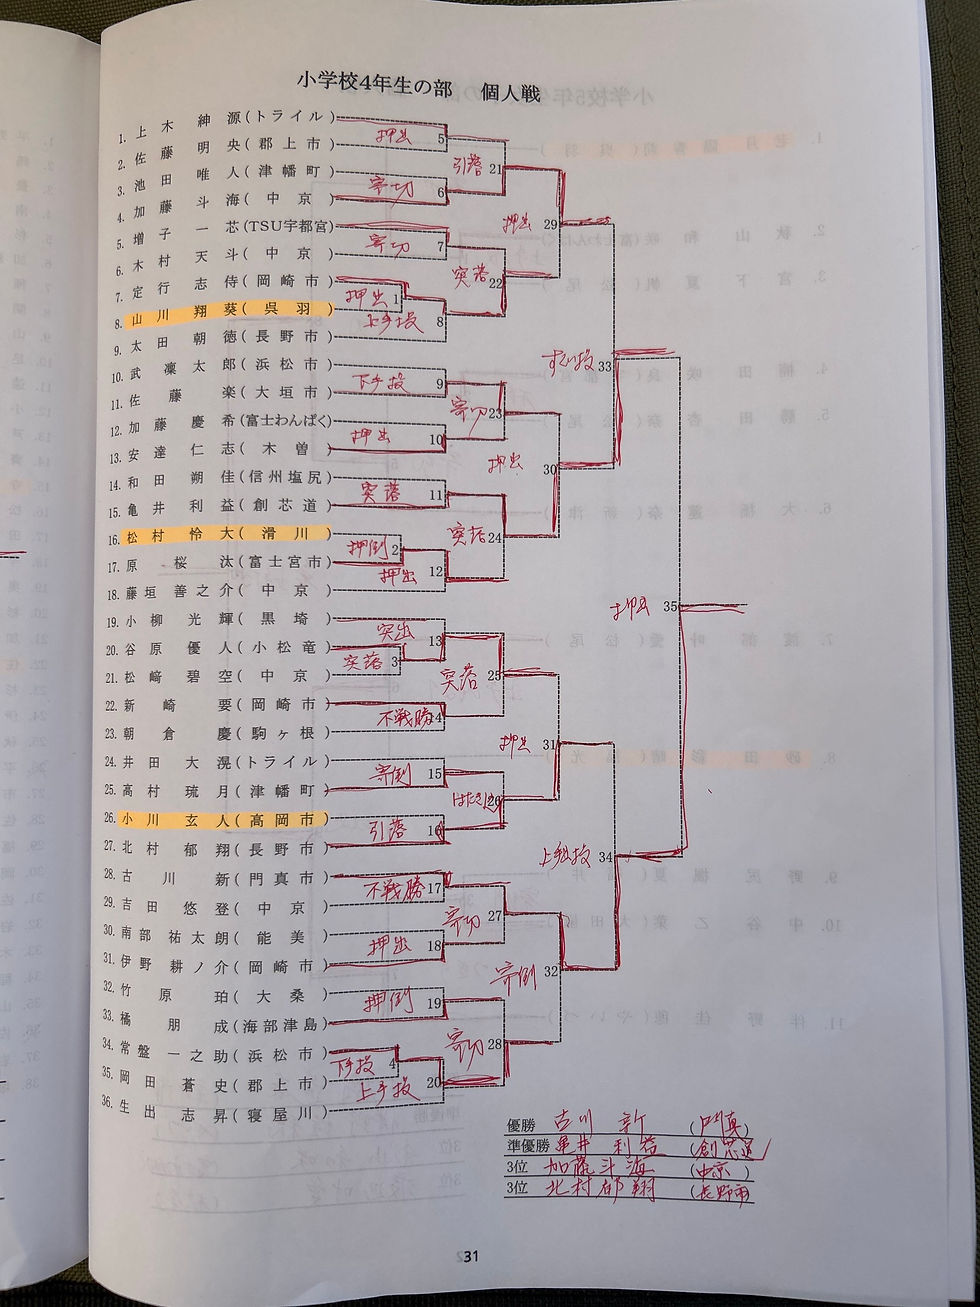 小学校4年生の部 個人戦
1. 上木 紳源(トライル)
2. 佐藤 明央(郡上市)
3. 池田 唯人(津幡町)
4. 加藤 斗海(中京)
5. 増子 一芯(TSU宇都宮)
6. 木村 天斗(中京)
7. 定行 志侍(岡崎市)
8. 山川 翔葵(呉羽)
9. 太田 朝徳(長野市)
10. 武 凜太郎(浜松市)
11. 佐藤 楽(大垣市)
12. 加藤 慶希(富士わんぱく)
13. 安達 仁志(木曽)
14. 和田 朔佳(信州塩尻)
15. 亀井 利益(創芯道)
16. 松村 怜大(滑川)
17. 原 桜汰(富士宮市)
18. 藤垣 善之介(中京)
19. 小柳 光輝(黒埼)
20. 谷原 優人(小松竜)
21. 松﨑 碧空(中京)
22. 新崎 要(岡崎市)
23. 朝倉 慶(駒ヶ根)
24. 井田 大滉(トライル)
25. 高村 琉月(津幡町)
26. 小川 玄人(高岡市)
27. 北村 郁翔(長野市)
28. 古川 新(門真市)
29. 吉田 悠登(中京)
30. 南部 祐太朗(能美)
31. 伊野 耕ノ介(岡崎市)
32. 竹原 珀(大桑)
33. 橘 朋成(海部津島)
34. 常盤 一之助(浜松市)
35. 岡田 蒼史(郡上市)
36. 生出 志昇(寝屋川)
押出 1
押倒 2
突落 3
下手投 4
押出 5
寄切 6
寄切 7
上手投 8
下手投 9
押出 10
突落 11
押出 12
突出 13
不戦勝 14
寄倒 15
引落 16
不戦勝 17
押出 18
押倒 19
上手投 20
引落 21
突落 22
寄切 23
突落 24
突落 25
はたき込 26
寄切 27
寄切 28
押出 29
押出 30
押出 31
寄倒 32
すくい投 33
上手投 34
押出 35
優勝 古川 新 (門真)
準優勝 亀井 利益 (創芯道)
3位 加藤 斗海 (中京)
3位 北村 郁翔 (長野市)
31